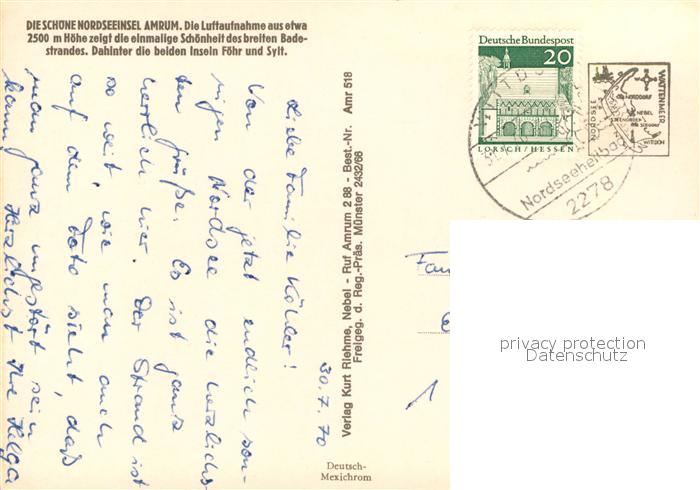 DIE SCHÖNE NORDSEEINSEL AMRUM. Die Luftaufnahme aus etwa
2500 m Höhe zeigt die einmalige Schönheit des breiten Bade-
strandes. Dahinter die beiden Inseln Föhr und Sylt.
30.7.70
Liebe Familie Köhler!
Von der jetzt endlich son-
nigen Nordsee die herzlichs-
ten Grüße. Es ist ganz
herrlich hier. Der Strand ist
so weit, wie man auch
auf dem Foto sieht, daß
man ganz ungestört sein
kann. Herzlichst Ihre Helga
Verlag Kurt Riehme, Nebel - Ruf Amrum 2 88 - Best.-Nr. Amr 518
Freigeg. d. Reg.-Präs. Münster 2432/66
Deutsch-
Mexichrom
Deutsche Bundespost
20
LORSCH/HESSEN
Nordseeheilbad
2278
NORDSEE
WATTENMEER
NORDDORF
NEBEL
WITTDÜN
Fam
1
privacy protection
Datenschutz